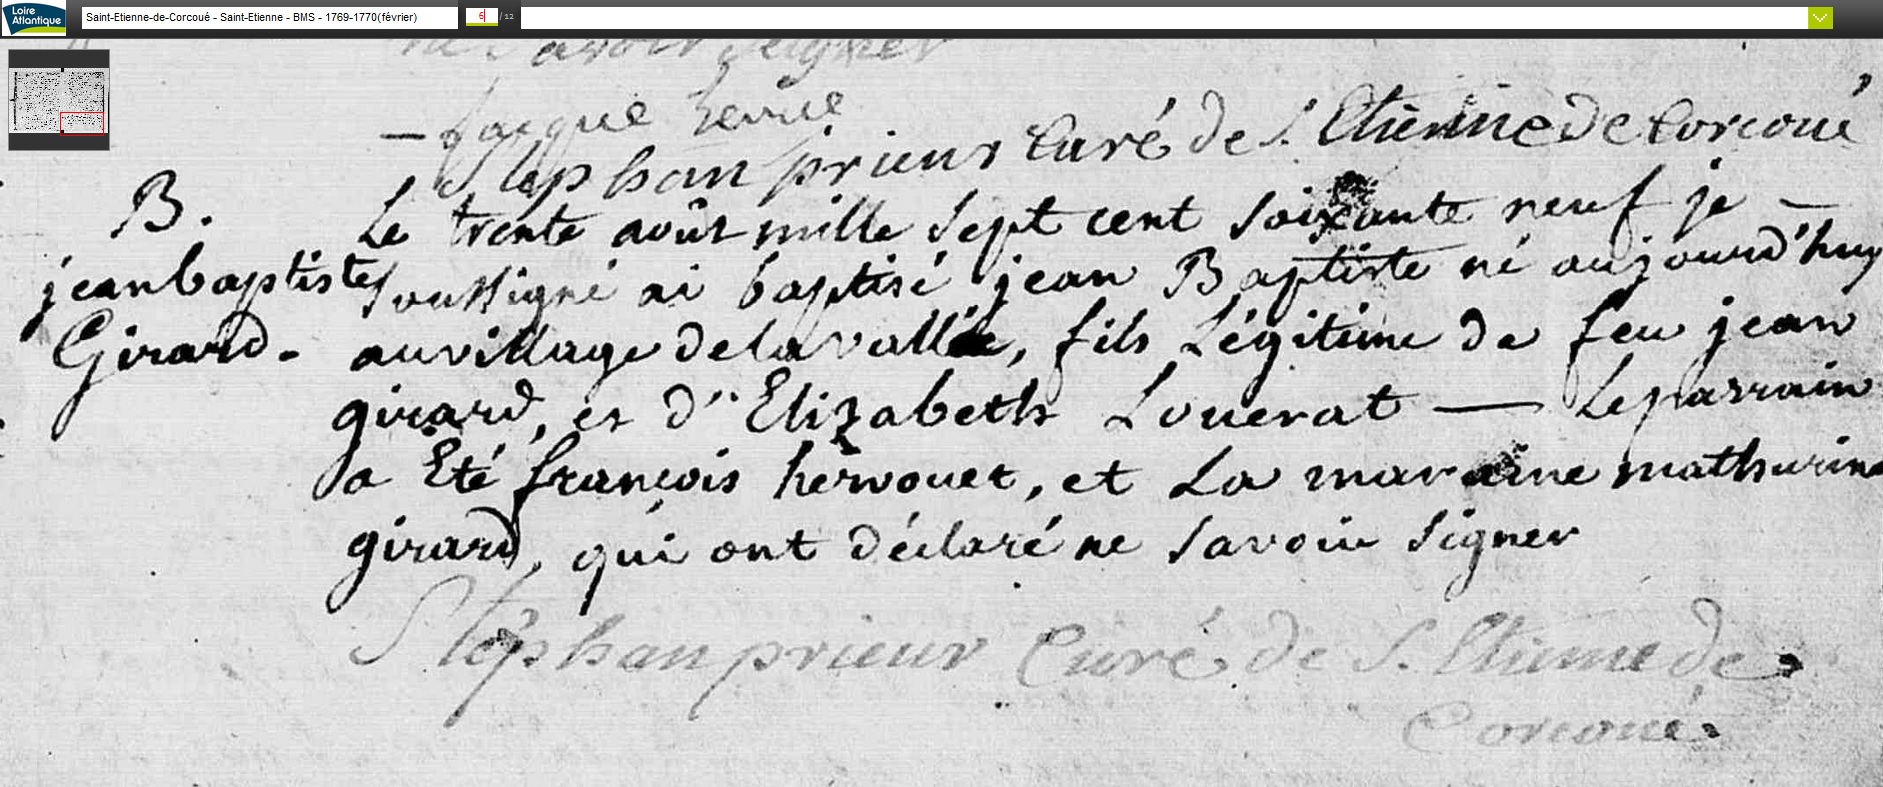 Loire
Atlantique
Saint-Etienne-de-Corcoué - Saint-Etienne - BMS - 1769-1770(février)
6 / 12
ne Savoir Seigner
— Jacque hervue
Stéphan prieur Curé de S. Etienne de Corcoué
B.
jean baptiste
Girard.
Le trente août mille Sept cent Soixante neuf je —
Soussigné ai baptisé jean Baptiste né aujourd'huy
au village de la vallée, fils Légitime de feu jean
girard, et d'Elizabeth Louerat — Le parrain
a Eté françois hervouet, et La maraine mathurine
girard, qui ont déclaré ne Savoir Signer
Stéphan prieur Curé de S. Etienne de
Corcoué.